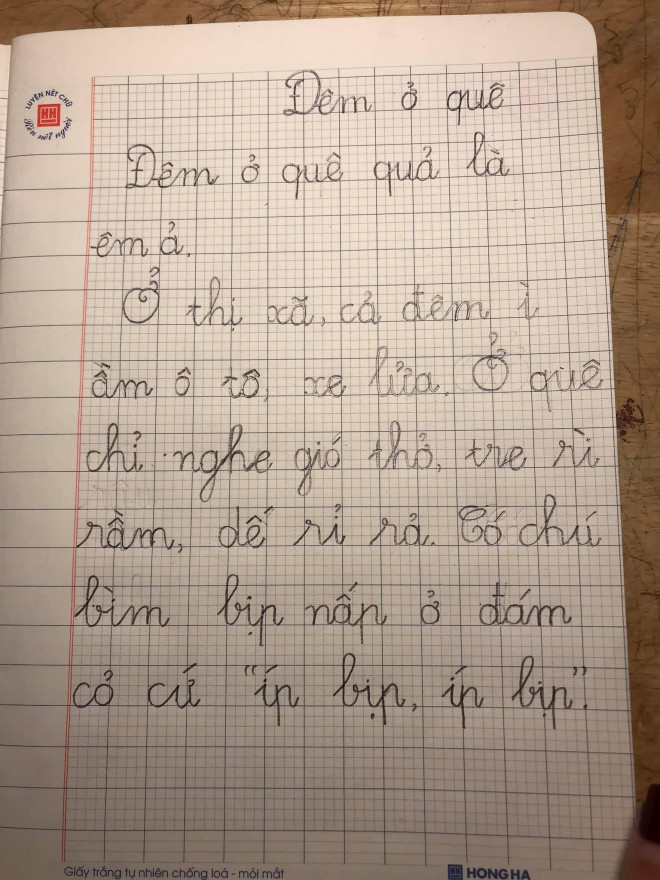 LUYỆN NÉT CHỮ
Rèn nết người
HH
Đêm ở quê
Đêm ở quê quả là
êm ả.
Ở thị xã, cả đêm ì
ầm ô tô, xe lửa. Ở quê
chỉ nghe gió thở, tre rì
rầm, dế rỉ rả. Có chú
bìm bịp nấp ở đám
cỏ cứ "íp bịp, íp bịp".
Giấy trắng tự nhiên chống loá - mỏi mắt
HONG HA